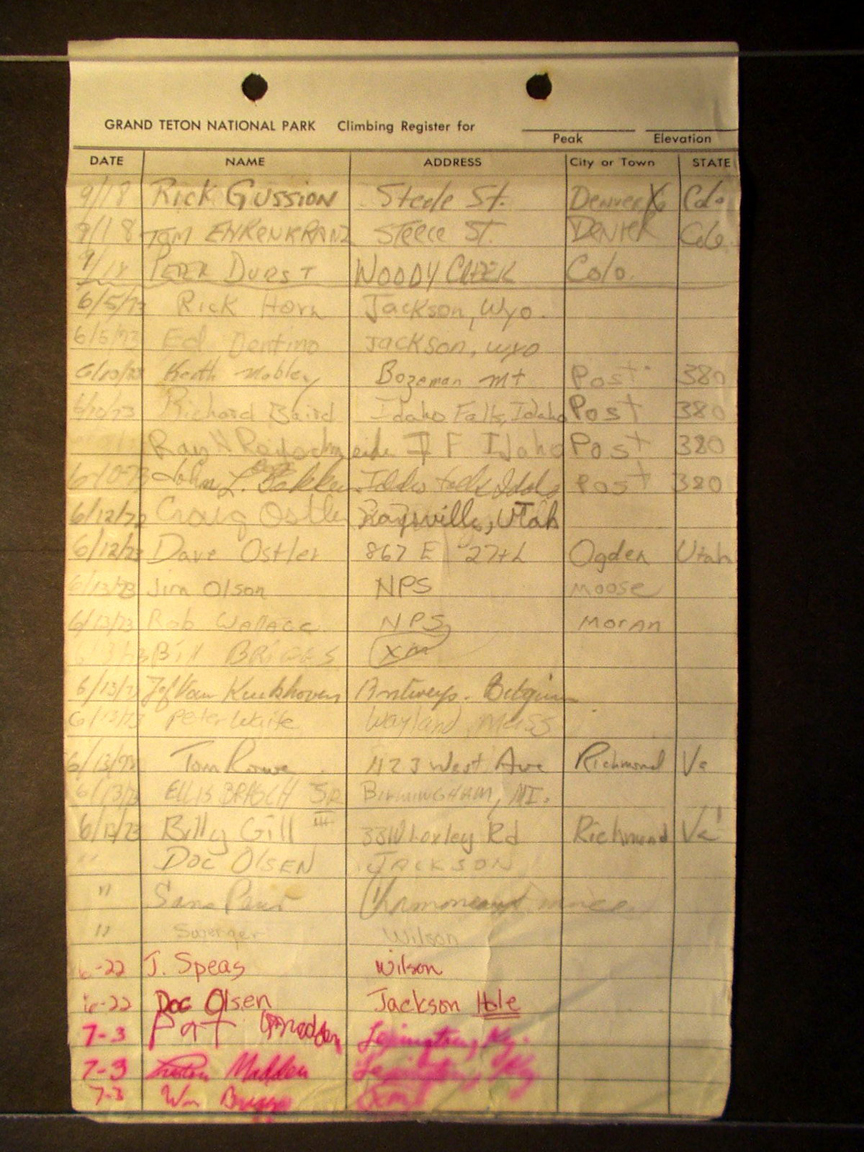 GRAND TETON NATIONAL PARK Climbing Register for
Peak Elevation
DATE NAME ADDRESS City or Town STATE
9/18 RICK GUSSION Steele St. Denver Colo
9/18 TOM EHRENKRANZ STEELE ST. DENVER Colo
9/18 PETER DURST WOODY CREEK Colo.
6/5/73 Rick Horn Jackson, Wyo.
6/5/73 Ed Jackson, wyo
6/10/73 Keith Mobley Bozeman Mt Post 380
6/10/73 Richard Baird Idaho Falls, Idaho Post 380
Ray I F Idaho Post 380
6/10/73 John L. Idaho Falls Idaho Post 380
6/12/73 Craig Ostler Kaysville, Utah
6/12/73 Dave Ostler 867 E 27th Ogden Utah
6/13/73 Jim Olson NPS Moose
6/13/73 Rob Wallace NPS Moran
6/13/73 Bill BRIGGS
6/13/73 Jef Van Antwerp. Belgium
6/13/73 Peter Waite Wayland, Mass
6/13/73 Tom Rowe 1123 West Ave Richmond Va
6/13/73 ELLIS SR BIRMINGHAM, MI.
6/13/73 Billy Gill III Loxley Rd Richmond Va
" DOC OLSEN JACKSON
"
" Wilson
6-22 J. Speas Wilson
6-22 Doc Olsen Jackson Hole
7-3 Pat Madden Lexington, Ky.
7-3 Preston Madden Lexington, Ky
7-3 Wm Briggs